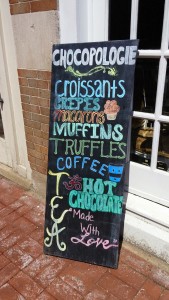 CHOCOPOLOGIE
Croissants
CRÊPES
macarons
MUFFINS
TRUFFLES
COFFEE
TEA
HOT
CHOCOLATE
Made
With
Love